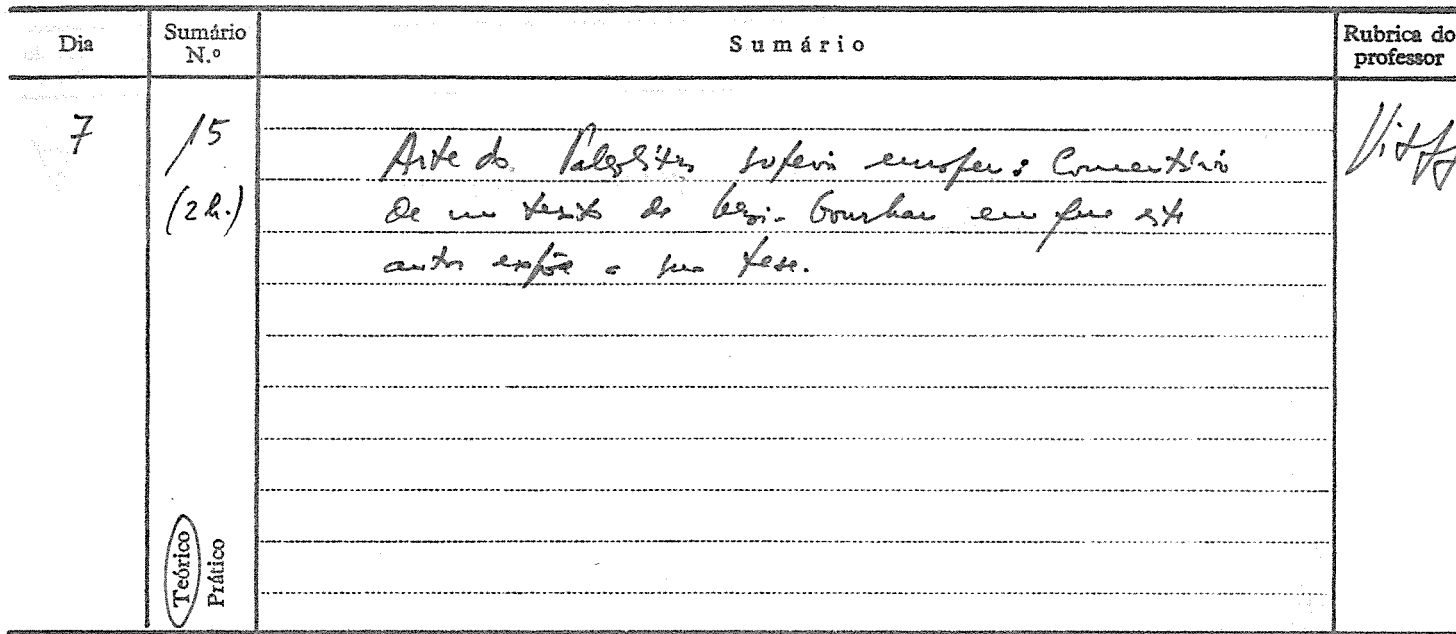 Dia
Sumário N.º
Sumário
Rubrica do professor
7
15
(2h.)
Arte do Paleolítico superior europeu: Comentário
de um texto de Leroi-Gourhan em que este
autor expõe a sua tese.
Teórico
Prático